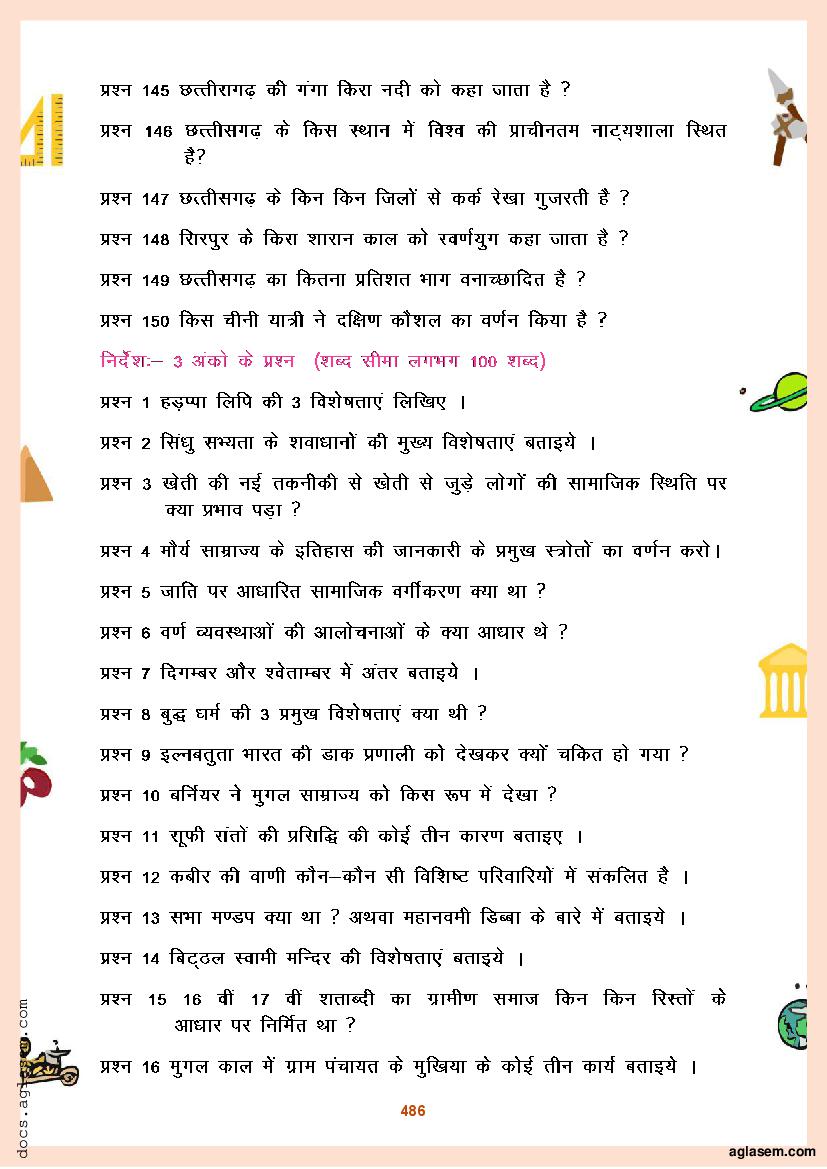 प्रश्न 145 छत्तीरागढ़ की गंगा किरा नदी को कहा जाता है ?
प्रश्न 146 छत्तीसगढ़ के किस स्थान में विश्व की प्राचीनतम नाट्यशाला स्थित
है?
प्रश्न 147 छत्तीसगढ़ के किन किन जिलों से कर्क रेखा गुजरती है ?
प्रश्न 148 सिरपुर के किरा शारान काल को स्वर्णयुग कहा जाता है ?
प्रश्न 149 छत्तीसगढ़ का कितना प्रतिशत भाग वनाच्छादित है ?
प्रश्न 150 किस चीनी यात्री ने दक्षिण कौशल का वर्णन किया है ?
निर्देशः– 3 अंको के प्रश्न (शब्द सीमा लगभग 100 शब्द)
प्रश्न 1 हड़प्पा लिपि की 3 विशेषताएं लिखिए ।
प्रश्न 2 सिंधु सभ्यता के शवाधानों की मुख्य विशेषताएं बताइये ।
प्रश्न 3 खेती की नई तकनीकी से खेती से जुड़े लोगों की सामाजिक स्थिति पर
क्या प्रभाव पड़ा ?
प्रश्न 4 मौर्य साम्राज्य के इतिहास की जानकारी के प्रमुख स्त्रोतों का वर्णन करो।
प्रश्न 5 जाति पर आधारित सामाजिक वर्गीकरण क्या था ?
प्रश्न 6 वर्ण व्यवस्थाओं की आलोचनाओं के क्या आधार थे ?
प्रश्न 7 दिगम्बर और श्वेताम्बर में अंतर बताइये ।
प्रश्न 8 बुद्ध धर्म की 3 प्रमुख विशेषताएं क्या थी ?
प्रश्न 9 इल्नबतुता भारत की डाक प्रणाली को देखकर क्यों चकित हो गया ?
प्रश्न 10 बर्नियर ने मुगल साम्राज्य को किस रूप में देखा ?
प्रश्न 11 राूफी रांतों की प्रसिद्धि की कोई तीन कारण बताइए ।
प्रश्न 12 कबीर की वाणी कौन–कौन सी विशिष्ट परिवारियों में संकलित है ।
प्रश्न 13 सभा मण्डप क्या था ? अथवा महानवमी डिब्बा के बारे में बताइये ।
प्रश्न 14 बिट्ठल स्वामी मन्दिर की विशेषताएं बताइये ।
प्रश्न 15 16 वीं 17 वीं शताब्दी का ग्रामीण समाज किन किन रिस्तों के
आधार पर निर्मित था ?
प्रश्न 16 मुगल काल में ग्राम पंचायत के मुखिया के कोई तीन कार्य बताइये ।
486
aglasem.com